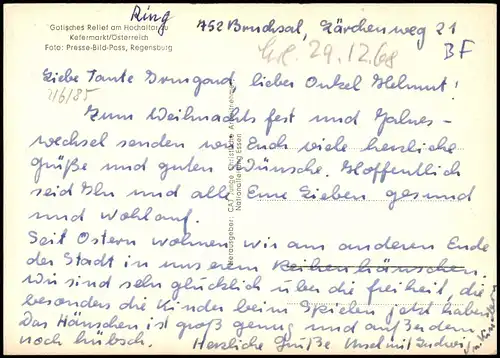 Ring
Gotisches Relief am Hochaltar zu
Kefermarkt/Österreich
Foto: Presse-Bild-Poss, Regensburg
752 Bruchsal, Lärchenweg 21
BF
29.12.68
Liebe Tante Irmgard lieber Onkel Helmut!
Zum Weihnachtsfest und Jahres-
wechsel senden wir Euch viele herzliche
Grüße und guten Wünsche. Hoffentlich
seid Ihr und alle Eure Lieben gesund
und wohlauf.
Seit Ostern wohnen wir am anderen Ende
der Stadt in unserem Reihenhäuschen.
Wir sind sehr glücklich über die Freiheit, die
besonders die Kinder beim Spielen jetzt haben.
Das Häuschen ist groß genug und außerdem
noch hübsch. Herzliche Grüße Ursel mit Ludwig
Herausgeber: CAJ Junge Christliche Arbeitnehmer
Nationalleitung Essen